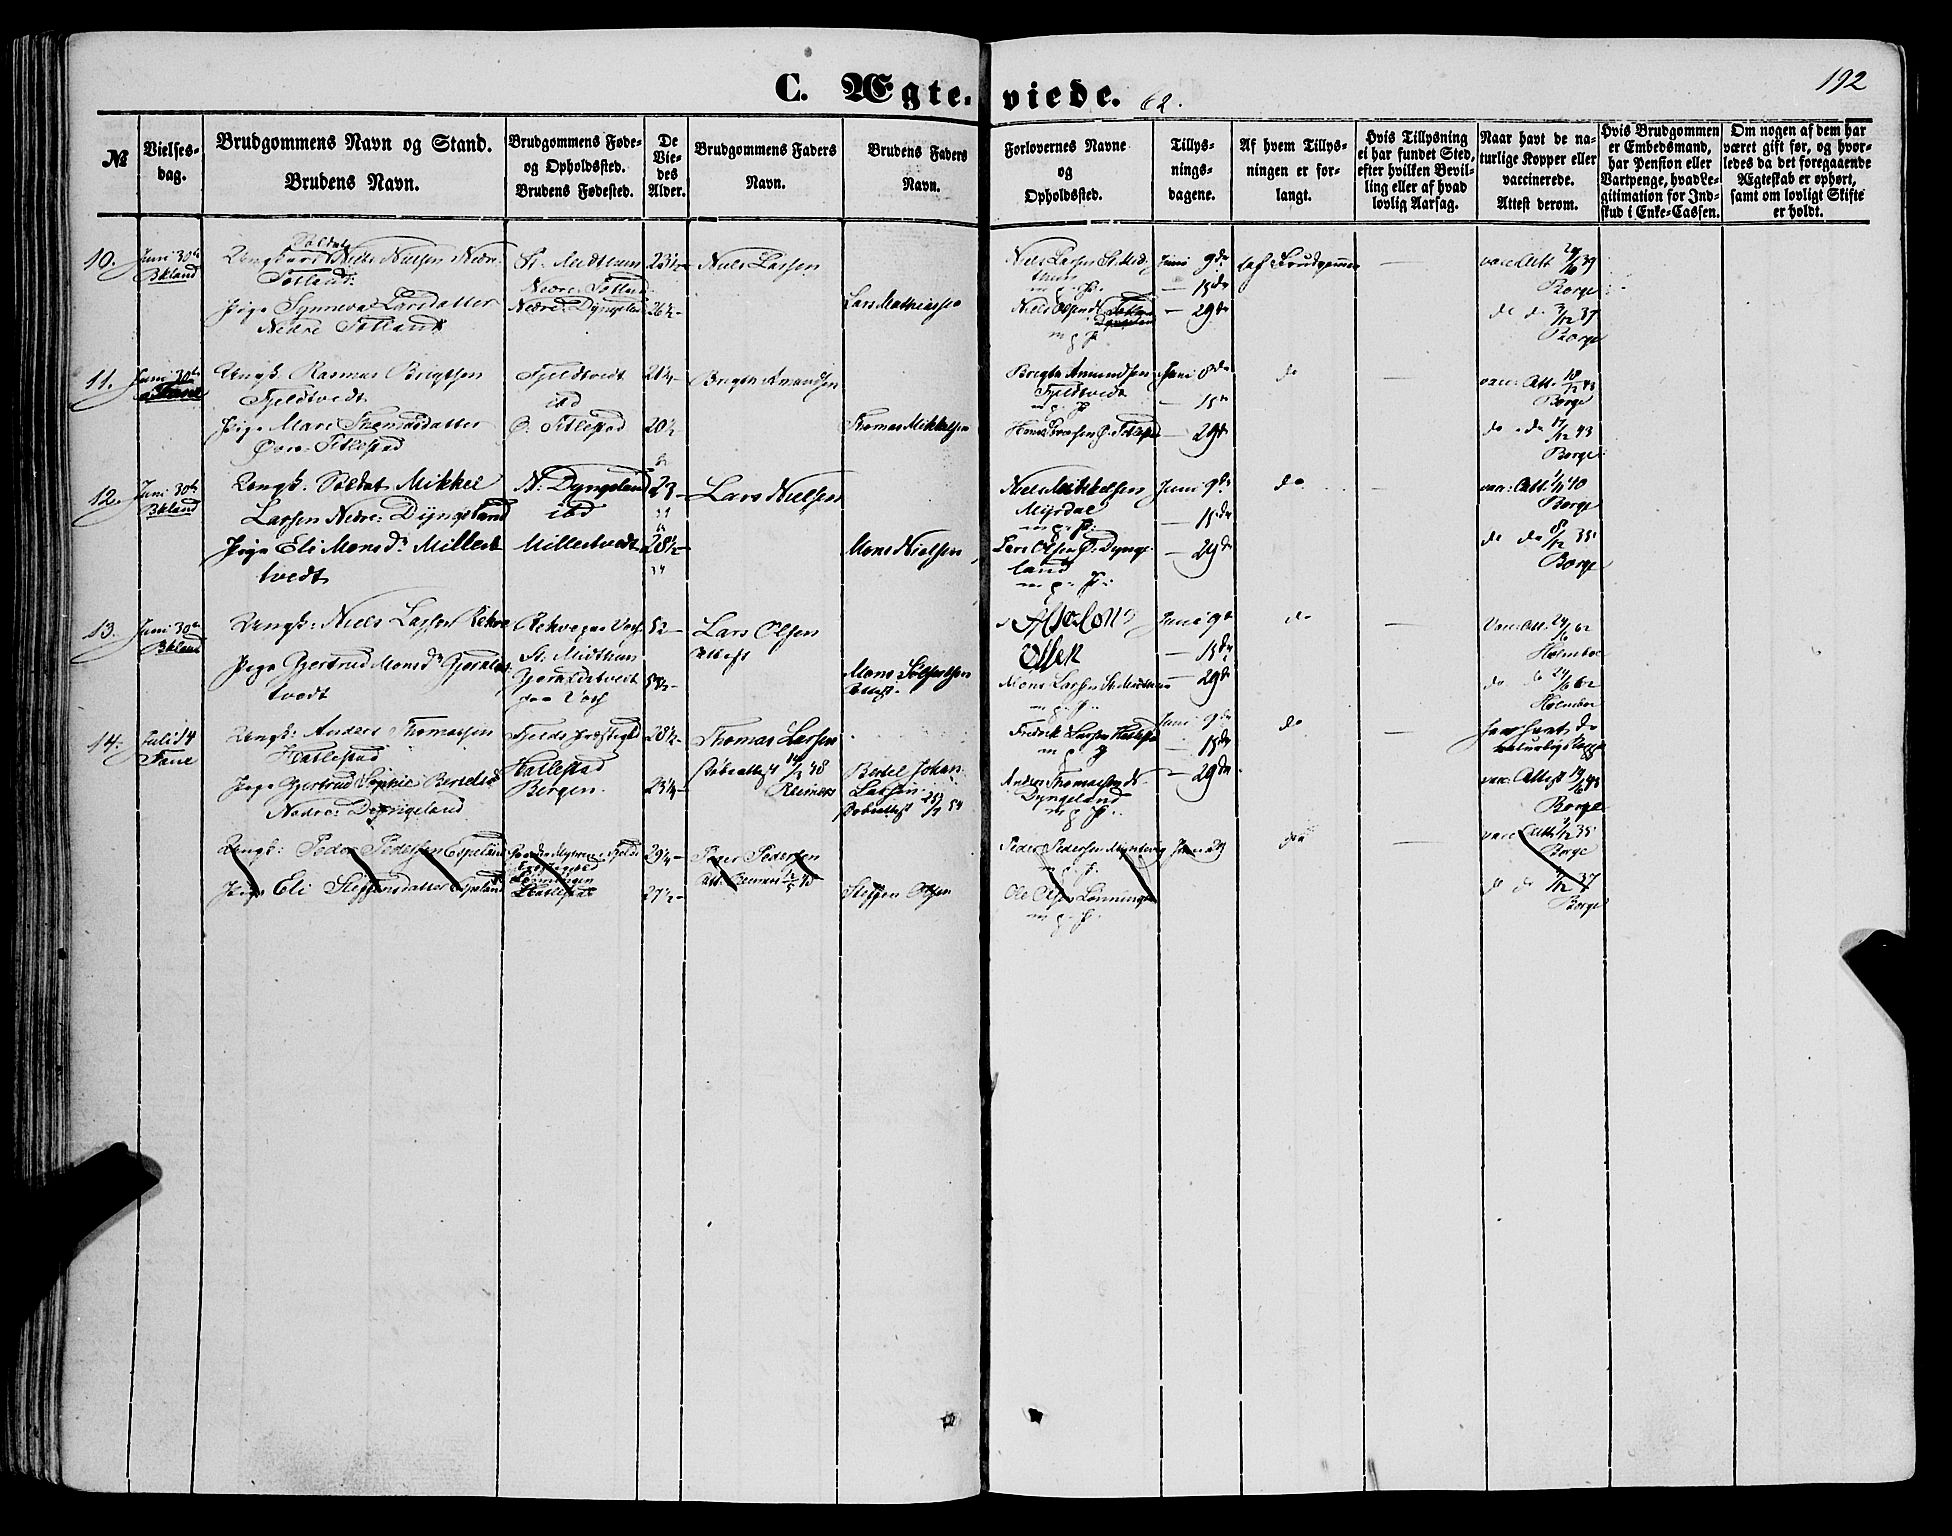 192
C. Ægte-viede. 62.
№
Vielses-
dag.
Brudgommens Navn og Stand.
Brudens Navn.
Brudgommens Føde-
og Opholdssted.
Brudens Fødested.
De
Vie-
des
Alder.
Brudgommens Faders
Navn.
Brudens Faders
Navn.
Forlovernes Navne
og
Opholdssted.
Tillys-
nings-
dagene.
Af hvem Tillys-
ningen er for-
langt.
Hvis Tillysning
ei har fundet Sted,
efter hvilken Bevil-
ling eller af hvad
lovlig Aarsag.
Naar havt de na-
turlige Kopper eller
vaccinerede.
Attest derom.
Hvis Brudgommen
er Embedsmand,
har Pension eller
Vartpenge, hvad Le-
gitimation for Ind-
skud i Enke-Cassen.
Om nogen af dem har
været gift før, og hvor-
ledes da det foregaaende
Ægteskab er ophørt,
samt om lovligt Skifte
er holdt.
10.
Juni 30te
Bkland
Soldat
Ungkarl Niels Nielsen Nedre
Totland
Pige Synneva Larsdatter
Nedre Totland
St. Midthun
Nedre Totland
Nedre Dyngeland
23½
26½
Niels Larsen
Lars Mathiassen
Niels Larsen St. Mid-
thun
m. p. P.
Niels Olsen N. Totland
Dyngeland
m p P
Juni 9de
— 15de
— 29de
af Brudgommen
—
vacc. Att. 39
Borge
do do 3/12 37
Borge
11.
Juni 30te
Fane
Ungk. Rasmus Brigtsen
Fjeldtvedt
Pige Mari Thomasdatter
Øvre Titlestad
Fjeldtvedt
ibd
Ø. Titlestad
21¼
20½
Brigte Amundsen
Thomas Mikkelsen
Brigte Amundsen
Fjeldtvedt
m. p. P.
Hans Ø. Titlestad
Juni 8de
— 15de
— 29de
do
—
vacc: Att. 18/12 43
Borge
do do 17/12 43
Borge
12.
Juni 30te
Bkland
Ungk: Soldat Mikkel
Larsen Nedre: Dyngeland
Pige Eli Monsdr Millest-
tvedt
N: Dyngeland
ibd
Millestvedt
23
28½
Lars Nielsen
Mons Nielsen
Niels Mikkelsen
Myrdal
m. p. P.
Lars Olsen Ø. Dynge-
land
m. p. P.
Juni 9de
— 15de
— 29de
do
—
vacc: Att. 40
Borge
do do 8/12 35
Borge
13.
Juni 30te
Bkland
Ungk: Niels Larsen Rekve
Pige Gjertrud Monsdr Gjerals-
tvedt
Rekve paa Vos
St. Midthun
Gjeraldstvedt
paa Vos
52
Lars Olsen
Attest
Mons
Attest.
Olsen
Mons Larsen St. Midthun
m. p. P.
Juni 9de
— 15de
— 29de
do
—
Vacc: Att. 24/6 62
Holmboe
do do 24/6 62
Holmboe
14.
Juli 14
Fane
Ungk: Anders Thomassen
Hatlestad
Pige Gjertrud Sophie Bertelsd
Nedre: Dyngeland
Fjelds Præstegjeld
Hatlestad
Bergen.
28½
23¼
Thomas Larsen
Døbeattest 48
Reimers
Bertel Johan
Larsen
Døbeattest 54
Fredrik Larsen Hatlestad
m p P
Anders Thomassen N
Dyngeland
m. p. P.
Juni 9de
— 15de
— 29de
do
—
har havt de
naturlige Kopper
vac: Attest 43
Borge
Ungk: Peder Pedersen Espeland
Pige Eli Steffensdatter Espeland
Lønningen
Hatlestad
29¼
27½
Peder Pedersen
Att. Reimers
Steffen Olsen
Peder Pedersen
m. p. P.
Ole Olsen Lønningen
m. p. P.
Juni
do
—
vacc Att. 35
Borge
do do 7/12 37
Borge